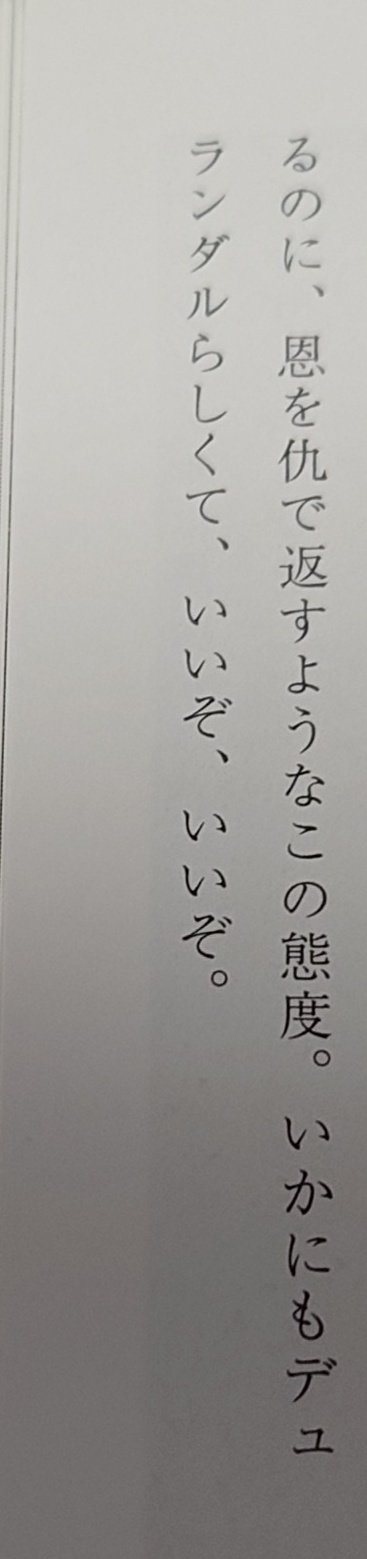 るのに、恩を仇で返すようなこの態度。いかにもデュ
ランダルらしくて、いいぞ、いいぞ。